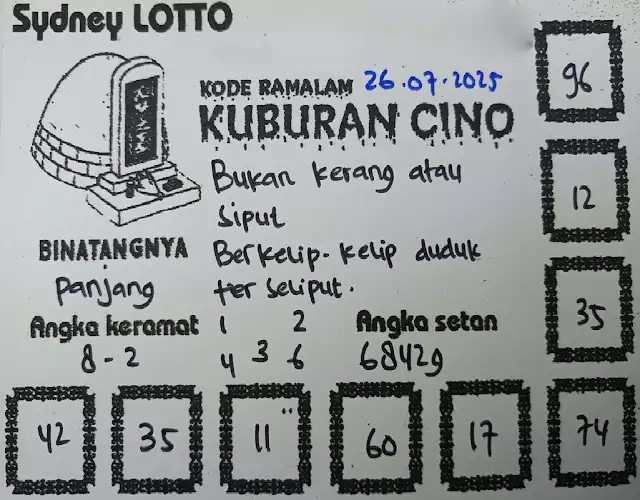 Sydney LOTTO
KODE RAMALAM 26.07.2025
KUBURAN CINO
Bukan kerang atau
Siput
Berkelip-kelip duduk
ter seliput.
BINATANGNYA
Panjang
Angka keramat
8-2
1 2
4 3 6
Angka setan
68429
96
12
35
74
42
35
11
60
17